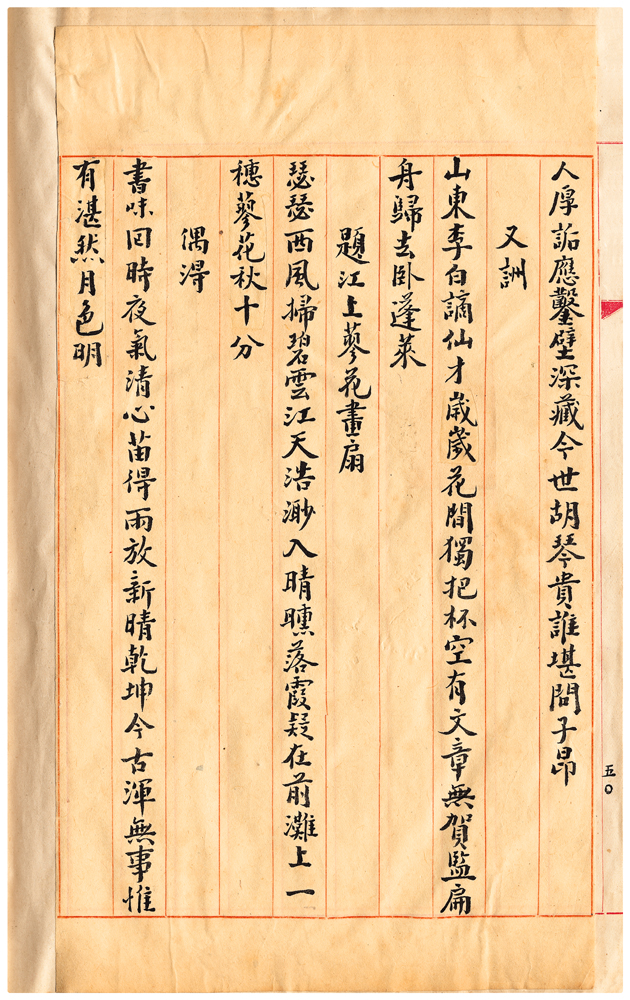 人厚詬應鑿壁深藏今世胡琴貴誰堪問子昂
又詶
山東李白謫仙才歲歲花間獨把杯空有文章無賀監扁
舟歸去臥蓬萊
題江上蓼花畫扇
瑟瑟西風掃碧雲江天浩渺入晴曛落霞疑在前灘上一
穗蓼花秋十分
偶得
書味回時夜氣清心苗得雨放新晴乾坤今古渾無事惟
有湛然月色明
五〇